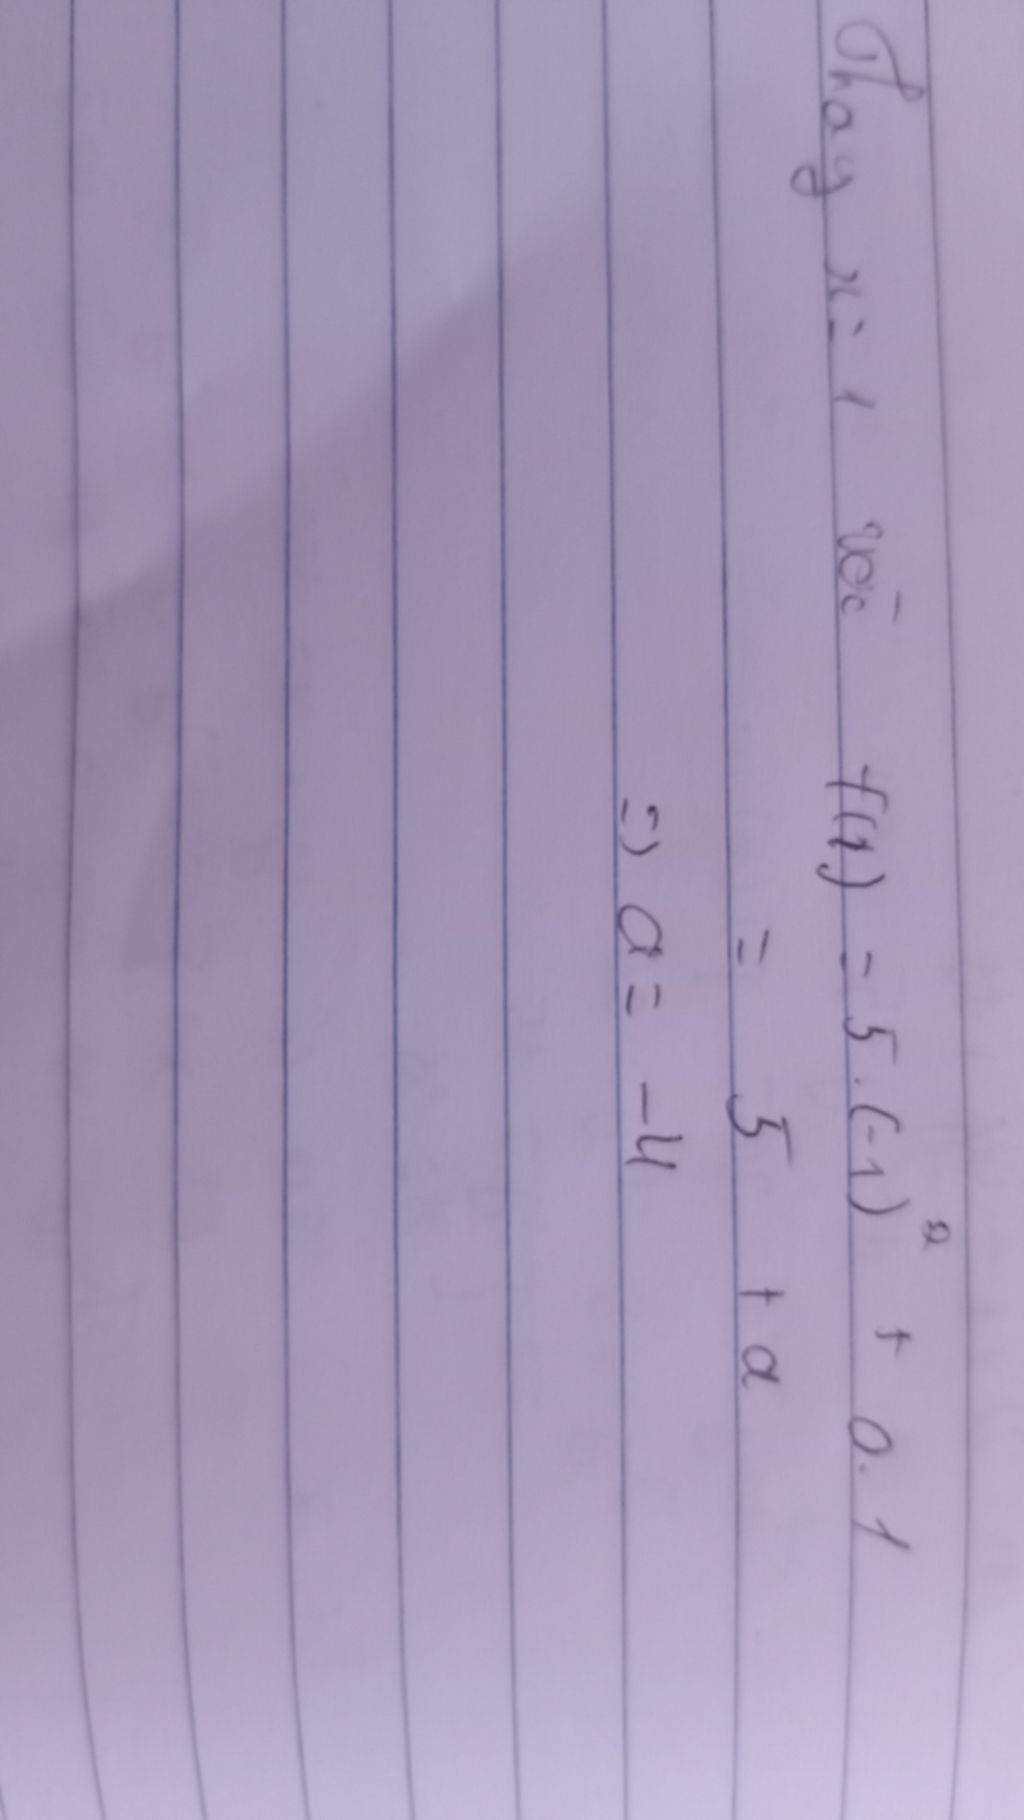 Thay x = 1 vào f(1) = 5.(-1)² + a.1
= 5 + a
=> a = -4